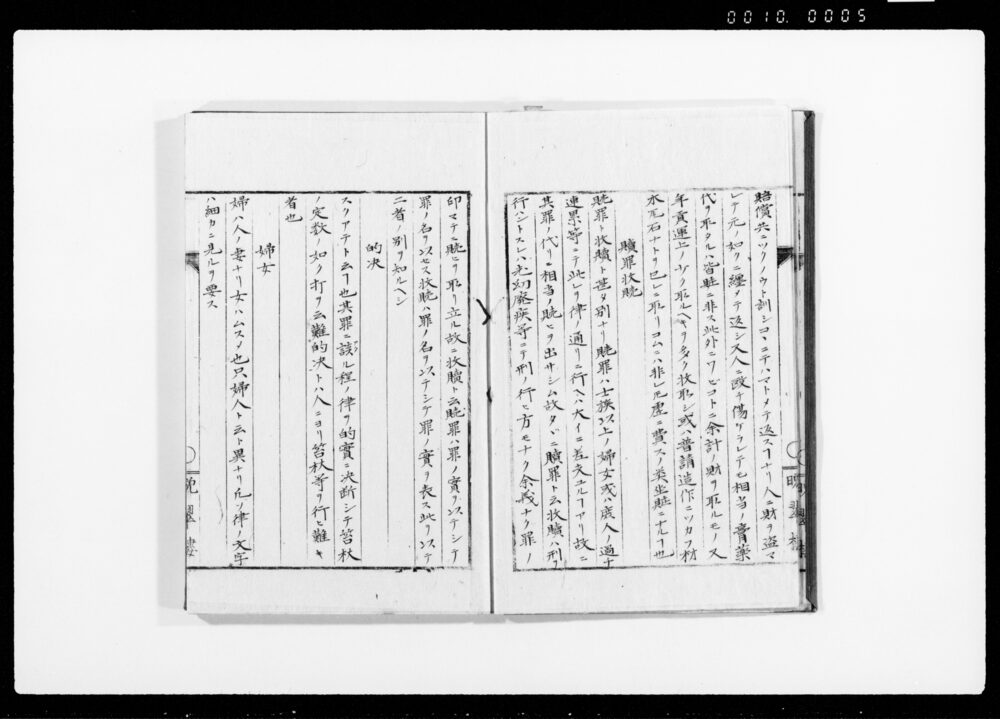 0010. 0005
賠償共ニツクノウト訓シコヽニテハマトメテ返スヿナリ人ニ財ヲ盗マ
レテ元ノ如クニ纏メテ返シ又人ニ毆チ傷ケラレテモ相当ノ膏薬
代ヲ取タルハ皆賍ニ非ス此外ニワビコトニ余計ノ財ヲ取ルモノス
年貢運上ノ少ク取ルヘキヲ多ク收取シ或ハ普請造作ニツカフ材
木瓦石ナトヲ己レニ取リコムニハ非レ𪜈虚ニ費スノ類坐賍ニナルヿ也
贖罪收贖
贖罪ト收贖ト甚タ別ナリ贖罪ハ士族以上ノ婦女或ハ歳人ノ過
連累等ニテ此レヲ律ノ通リニ行ヘハ大イニ差支ユルヿアリ故ニ
其罪ノ代リニ相当ノ贖ヒヲ出サシム故タヾニ贖罪ト云收贖ハ刑ヲ
行ハントスレハ老幼廢疾等ニテ刑ノ行ヒ方モナク余義ナク罪ノ
晩翠樓
印マテニ贖ヒヲ取リ立ル故ニ收贖ト云贖罪ハ罪ノ實ヲ以テシテ
罪ノ名ヲ以セス收贖ハ罪ノ名ヲ以テシテ罪ノ實ヲ表ス此ヲ以テ
二者ノ別ヲ知ルヘシ
的决
スクアテト云ヿ也其罪ニ該ル程ノ律ヲ的實ニ决断シテ笞杖
ノ定数ノ如ク打ヲ云難的决トハ人ニヨリ笞杖等ヲ行ヒ難キ
者也
婦女
婦ハ人ノ妻ナリ女ハムスメ也只婦人ト云ト異ナリ凡ソ律ノ文字
ハ細カニ見ルヲ要ス
晩翠樓